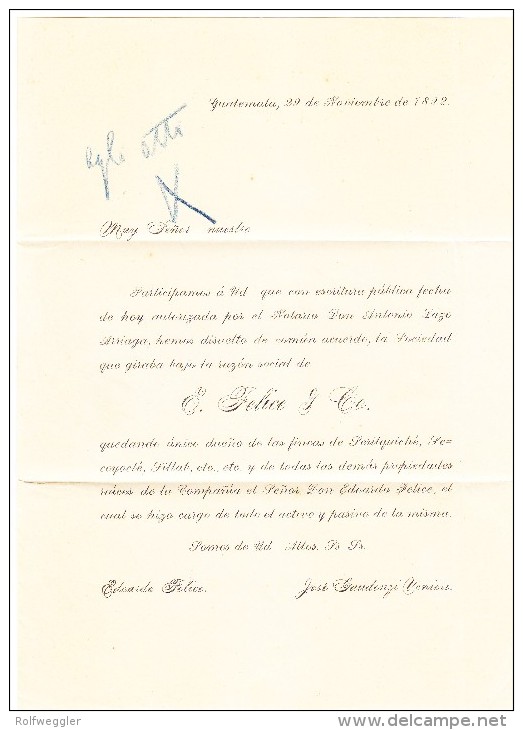 Guatemala, 29 de Noviembre de 1892.
Muy Señor nuestro
Participamos á Ud que con escritura pública fecha
de hoy autorizada por el Notario Don Antonio Lazo
Arriaga, hemos disuelto de común acuerdo, la Sociedad
que giraba bajo la razón social de
E. Felice & Co.
quedando único dueño de las fincas de
etc. etc. y de todas las demás propiedades
raíces de la Compañía el Señor Don Edoardo Felice, el
cual se hizo cargo de todo el activo y pasivo de la misma.
Somos de Ud Attos. Ss Ss.
Edoardo Felice. José Gaudenzi
Rolfweggler
delcampe.net